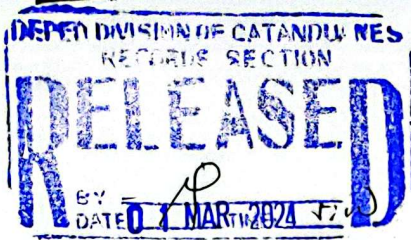 DEPED DIVISION OF CATANDUANES
RECORDS SECTION
RELEASED
BY
DATE 01 MAR 2024